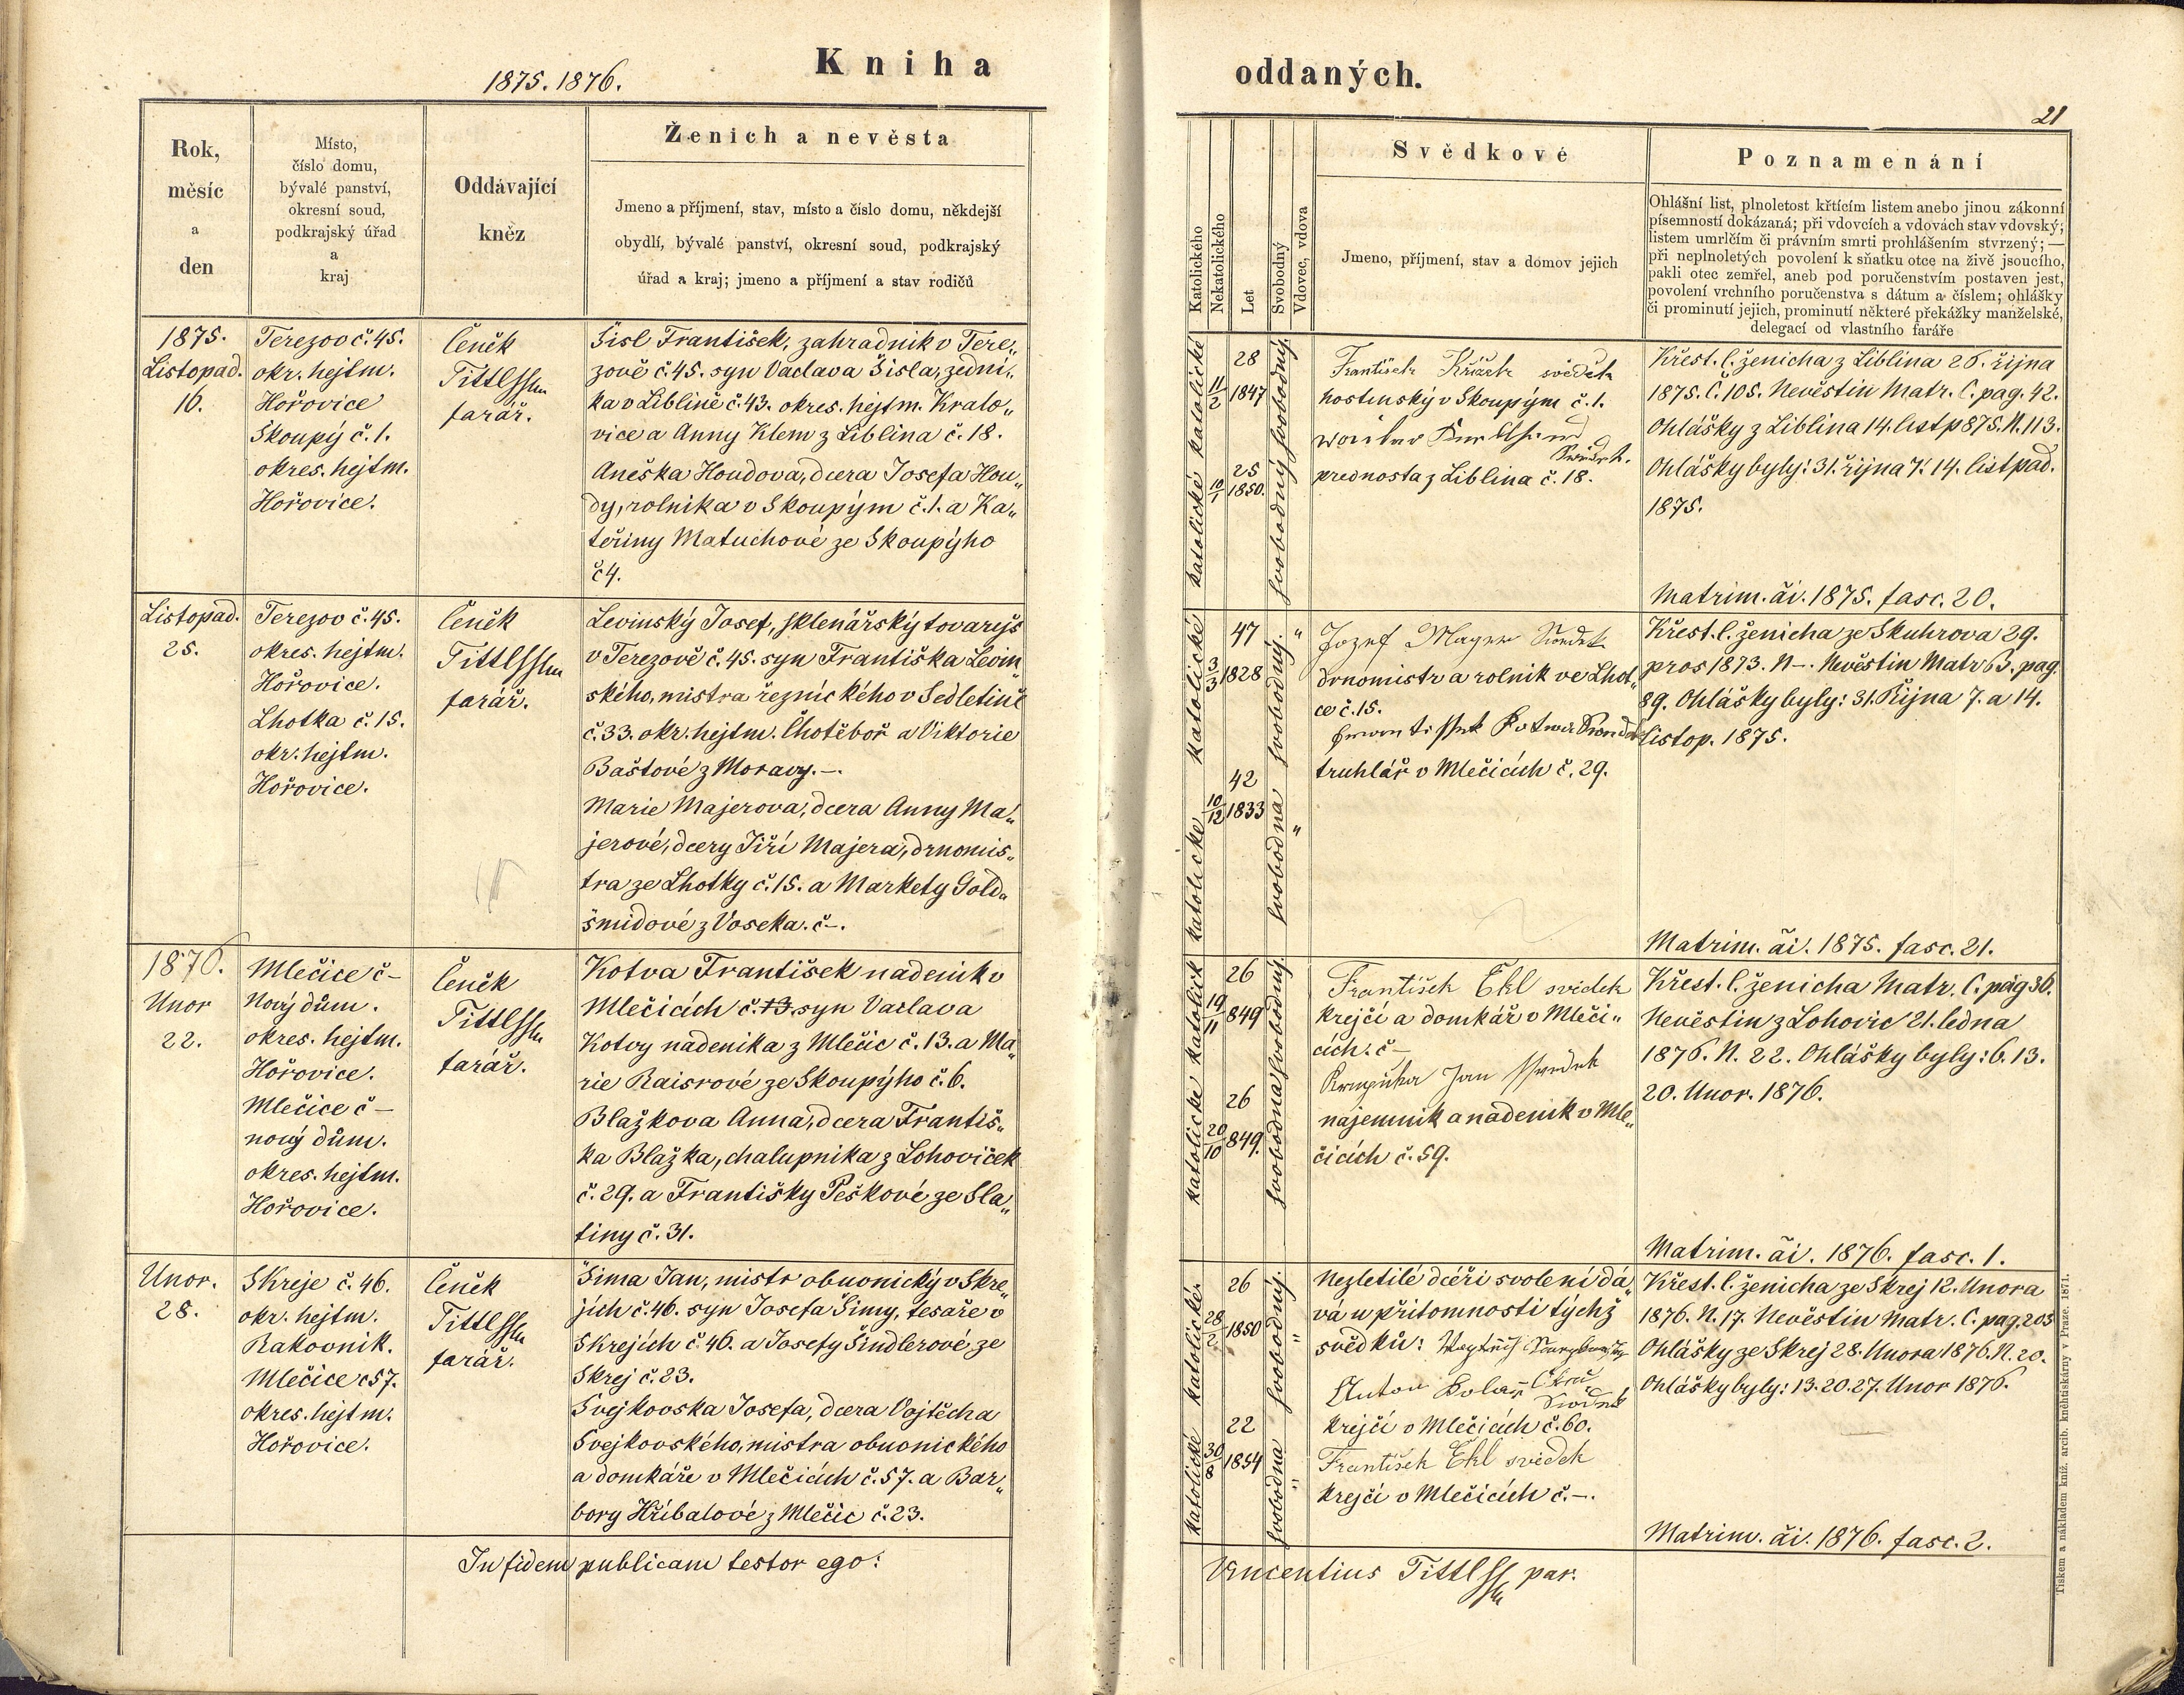 1875. 1876.
Kniha
Rok,
měsíc
a
den
Místo,
číslo domu,
bývalé panství,
okresní soud,
podkrajský úřad
a
kraj
Oddávající
kněz
Ženich a nevěsta
Jmeno a příjmení, stav, místo a číslo domu, někdejší
obydlí, bývalé panství, okresní soud, podkrajský
úřad a kraj; jmeno a příjmení a stav rodičů
1875.
Listopad.
16.
Terezov č. 45.
okr. hejtm.
Hořovice
Skoupý č. 1.
okres. hejtm.
Hořovice.
Čeněk
Tittl
farář.
Šisl František, zahradnik v Tere„
zově č. 45. syn Vaclava Šisla, zedni„
ka v Liblině č. 43. okres. hejtm. Kralo„
vice a Anny Klem z Liblina č. 18.
Aneška Houdova, dcera Josefa Hou„
dy, rolnika v Skoupým č. 1. a Ka„
teřiny Matuchové ze Skoupýho
č 4.
Listopad.
25.
Terezov č. 45.
okres. hejtm.
Hořovice.
Lhotka č. 15.
okr. hejtm.
Hořovice.
Čeněk
Tittl
farář.
Levinský Josef, sklenářský tovaryš
v Terezově č. 45. syn Františka Levin„
ského, mistra řeznického v Sedletině
č. 33. okr. hejtm. Chotěboř a Viktorie
Baštové z Moravy. –.
Marie Majerova, dcera Anny Ma„
jerové, dcery Jiří Majera, drnomis„
tra ze Lhotky č. 15. a Markety Gold„
šmidové z Voseka. č –.
1876.
Unor
22.
Mlečice č –
Nový dům.
okres. hejtm.
Hořovice.
Mlečice č –
nový dům.
okres. hejtm.
Hořovice.
Čeněk
Tittl
farář.
Kotva František nadenik v
Mlečicích č. 13. syn Vaclava
Kotvy nadenika z Mlečic č. 13. a Ma„
rie Raisrové ze Skoupýho č. 6.
Blažkova Anna, dcera Františ„
ka Blažka, chalupnika z Lohoviček
č. 29. a Františky Peškové ze Sla„
tiny č. 31.
Unor.
28.
Skreje č. 46.
okr. hejtm.
Rakovnik.
Mlečice č 57.
okres. hejtm.
Hořovice.
Čeněk
Tittl
farář.
Šima Jan, mistr obuvnický v Skre„
jích č. 46. syn Josefa Šimy, tesaře v
Skrejích č. 46. a Josefy Šindlerové ze
Skrej č. 23.
Svejkovska Josefa, dcera Vojtěcha
Svejkovského, mistra obuvnického
a domkáře v Mlečicích č. 57. a Bar„
bory Hřibalové z Mlečic č. 23.
In fidem publicam testor ego:
oddaných.
21
Katolického
Nekatolického
Let
Svobodný
Vdovec, vdova
Svědkové
Jmeno, příjmení, stav a domov jejich
Poznamenání
Ohlášní list, plnoletost křtícím listem anebo jinou zákonní
písemností dokázaná; při vdovcích a vdovách stav vdovský;
listem umrlčím či právním smrti prohlášením stvrzený; —
při neplnoletých povolení k sňatku otce na živě jsoucího,
pakli otec zemřel, aneb pod poručenstvím postaven jest,
povolení vrchního poručenstva s dátum a číslem; ohlášky
či prominutí jejich, prominutí některé překážky manželské,
delegací od vlastního faráře
katolické
11/2
28
1847
svobodný
katolické
10/1
25
1850.
svobodný
František Křížek svědek
hostinský v Skoupým č. 1.
prednosta z Liblina č. 18.
Křest. l. ženicha z Liblina 26. řijna
1875. Č. 105. Nevěstin Matr. C. pag. 42.
Ohlášky z Liblina 14. listp 875. N. 113.
Ohlášky byly: 31. řijna 7. 14. listpad.
1875.
Matrim. ăi. 1875. fasc. 20.
katolické
3/3
47
1828
svobodný. "
katolické
10/12
42
1833
svobodna "
Jozef Mayer Swedek
drnomistr a rolnik ve Lhot„
ce č. 15.
truhlář v Mlečicích č. 29.
Křest. l. ženicha ze Skuhrova 29.
pros 1873. N –. Nevěstin Matr B. pag.
89. Ohlášky byly: 31. Řijna 7. a 14.
listop. 1875.
Matrim. ăi. 1875. fasc. 21.
katolick
19/11
26
849
svobodný
katolické
20/10
26
849.
svobodna
František Ekl svědek
krejčí a domkář v Mleči„
cích. č –
Krupička Jan
najemnik a nadenik v Mle„
čicích č. 59.
Křest. l. ženicha Matr. C. pag 36.
Nevěstin z Lohovic 21. ledna
1876. N. 22. Ohlášky byly: 6. 13.
20. Unor. 1876.
Matrim. ăi. 1876. fasc. 1.
katolické.
28/2
26
1850
svobodný. "
katolické
30/8
22
1854
svobodna "
Nezletilé dceři svolení dá„
vá u přitomnosti týchž
svědků:
Anton Kolař
krejčí v Mlečicích č. 60.
František Ekl svědek
krejčí v Mlečicích č. –.
Křest. l. ženicha ze Skrej 12. Unora
1876. N. 17. Nevěstin Matr. C. pag. 203
Ohlášky ze Skrej 28. Unora 1876. N. 20.
Ohlášky byly: 13. 20. 27. Unor 1876.
Matrim. ăi. 1876. fasc. 2.
Vincentius Tittl par.
Tiskem a nákladem kníž. arcib. kněhtiskárny v Praze. 1871.